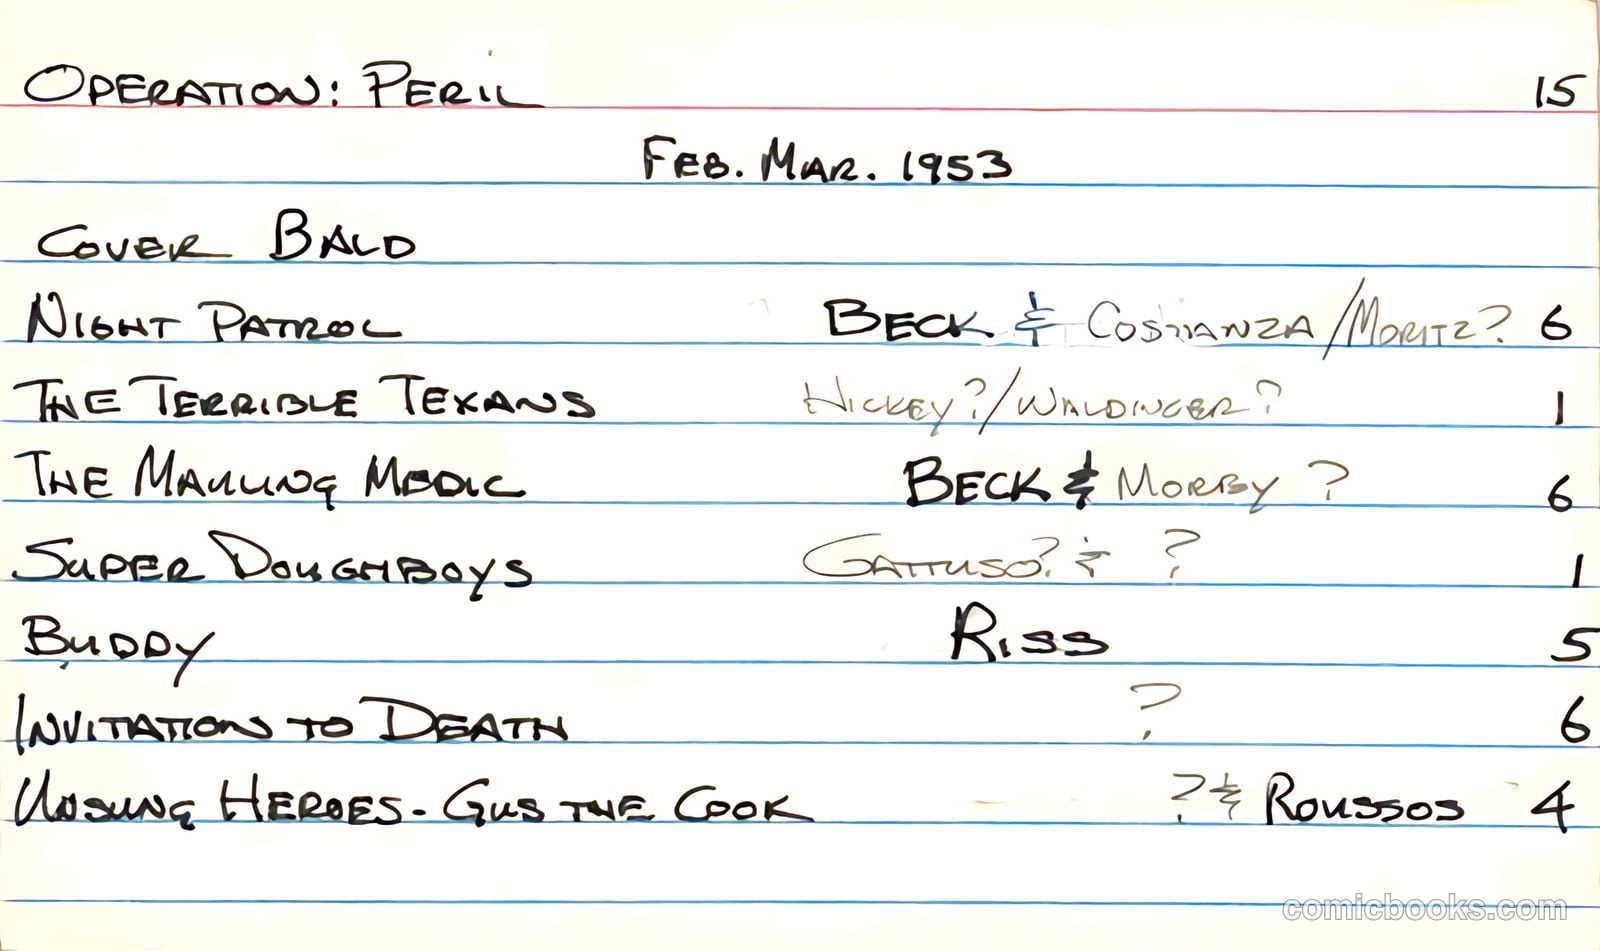 OPERATION: PERIL 15
FEB. MAR. 1953
COVER BALD
NIGHT PATROL BECK & COSTANZA/MORITZ? 6
THE TERRIBLE TEXANS HICKEY?/WALDINGER? 1
THE MAULING MEDIC BECK & MORBY ? 6
SUPER DOUGHBOYS GATTUSO? & ? 1
BUDDY RISS 5
INVITATION TO DEATH ? 6
UNSUNG HEROES - GUS THE COOK ? & ROUSSOS 4
comicbooks.com